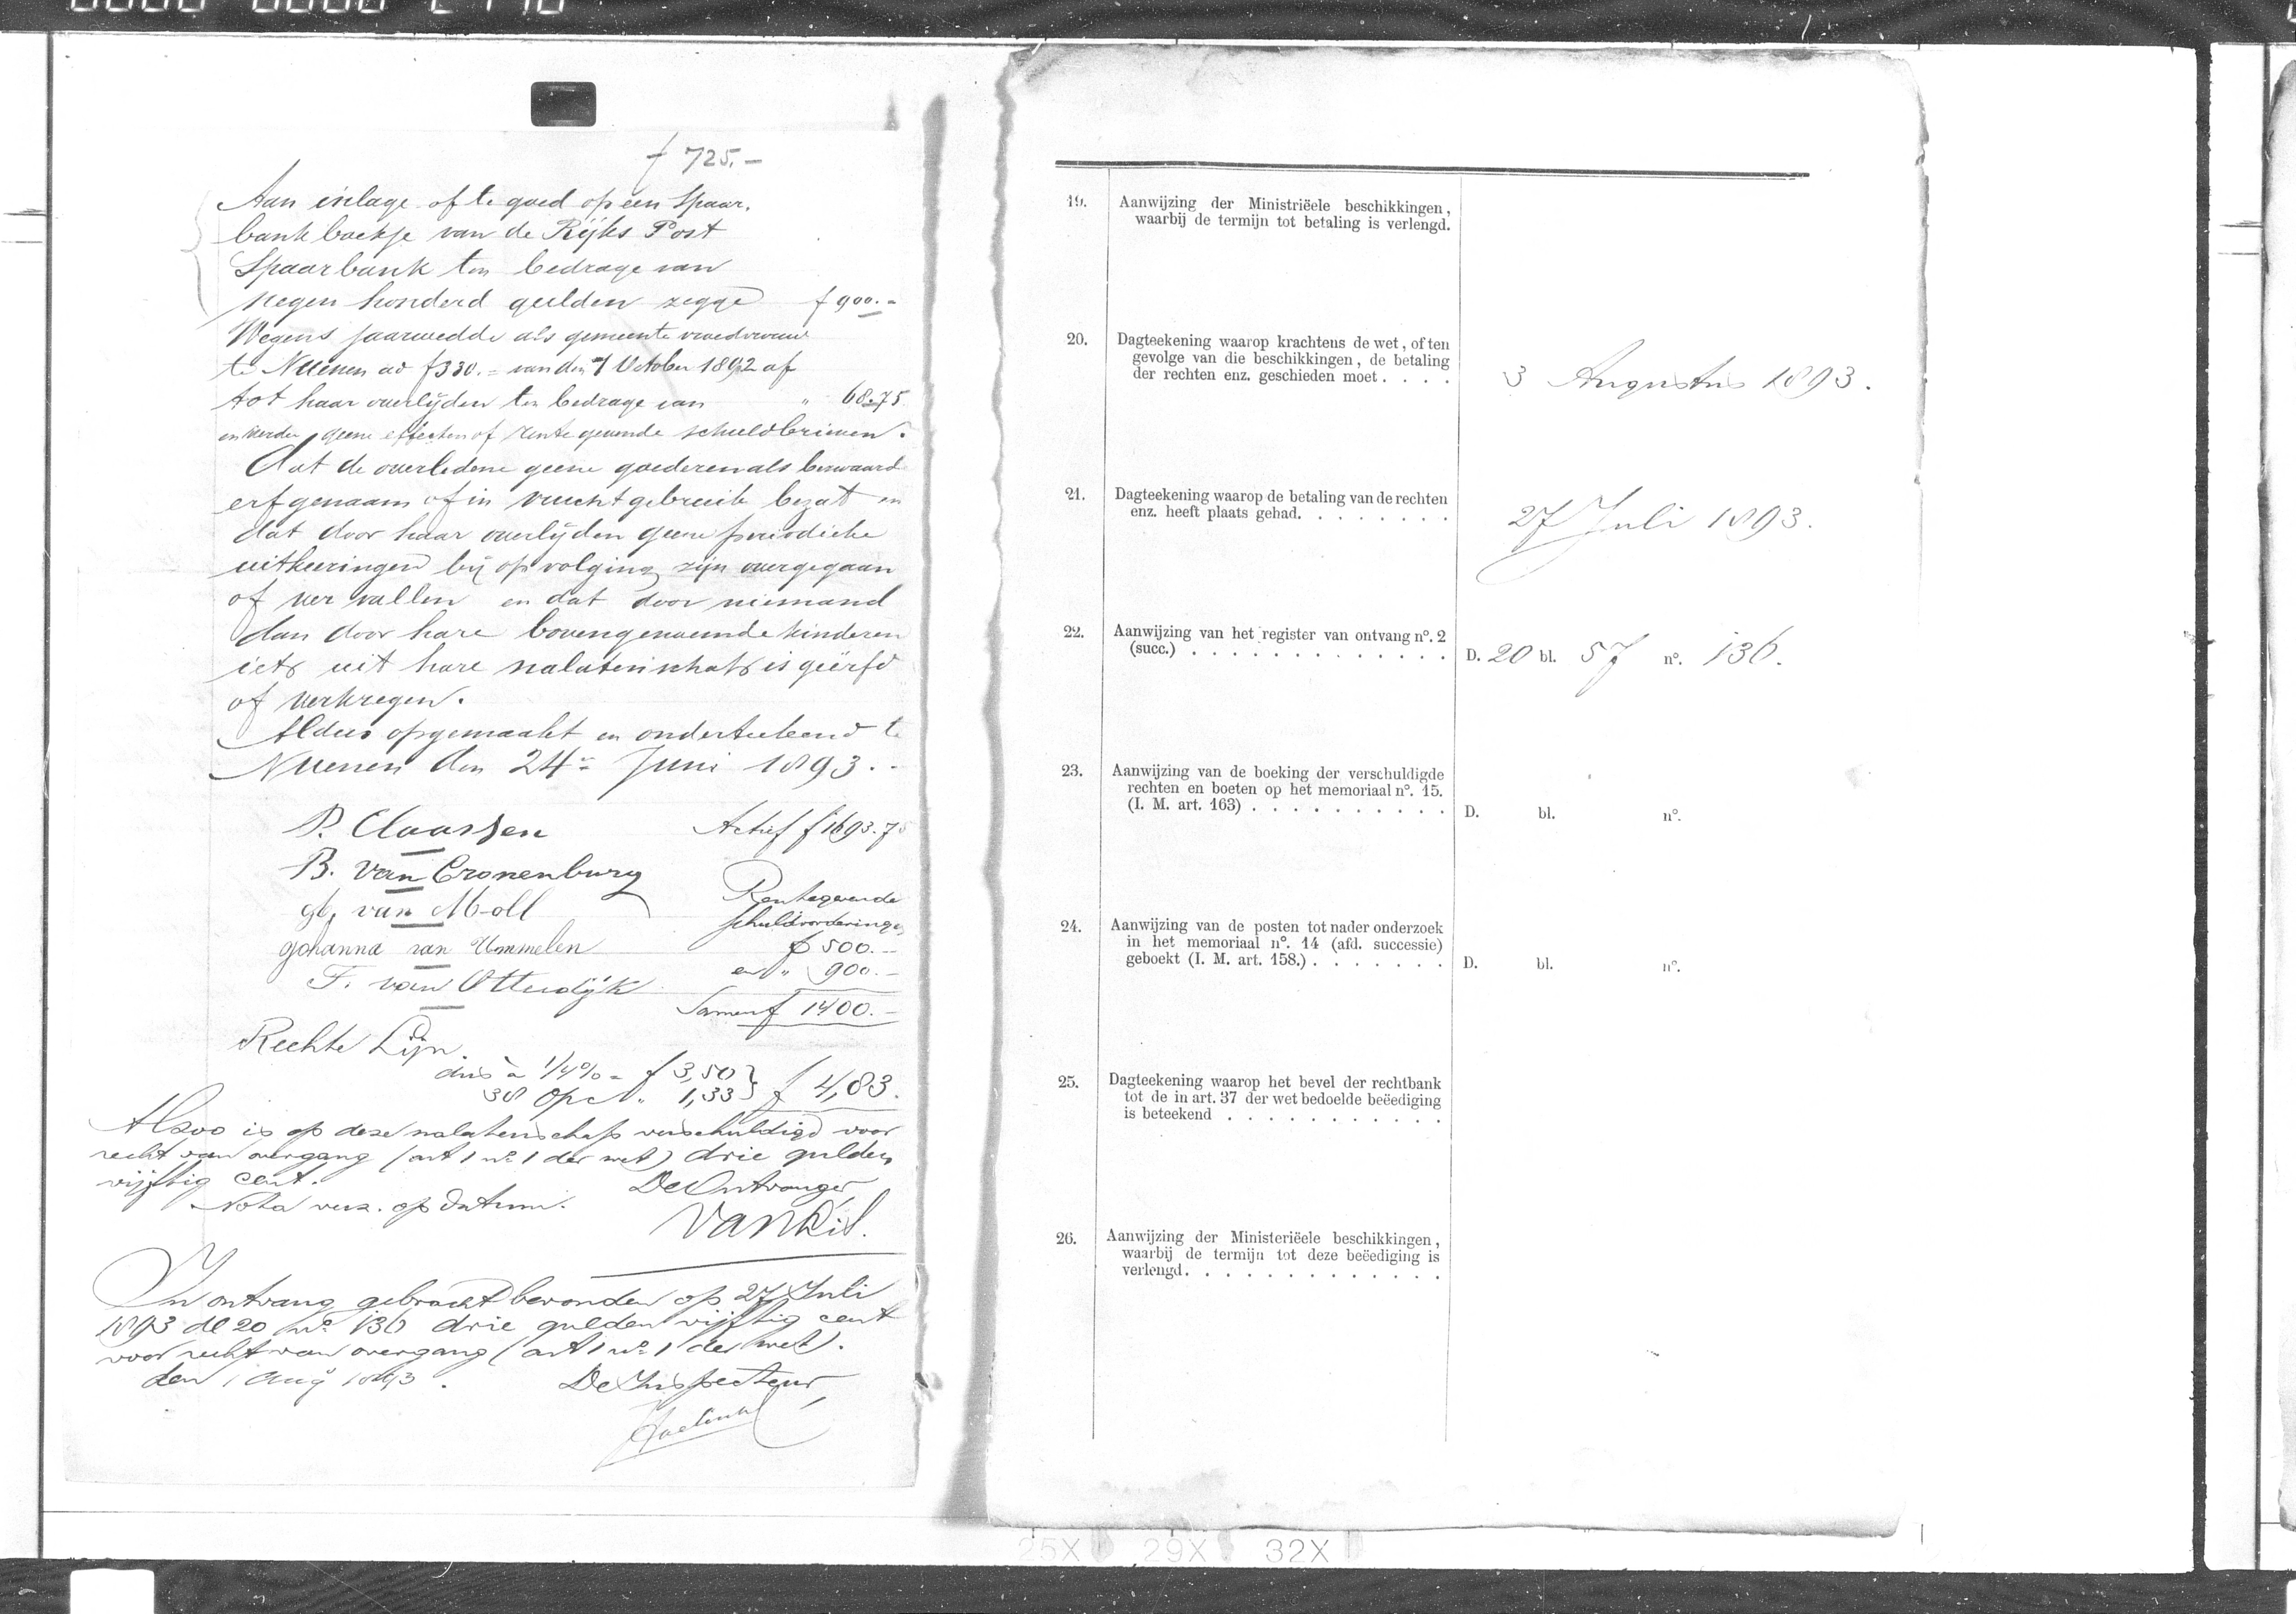 f 725.–
Aan inlage of te goed op een Spaar-
bank boekje van de Rijks Post
Spaarbank ten bedrage van
negen honderd gulden zegge f 900.=
Wegens jaarwedde als gemeente vroedvrouw
te Nuenen ad f 330.= van den 1 October 1892 af
tot haar overlijden ten bedrage van " 68.75
en verder geene effecten of rente gevende schuldbrieven.
Dat de overledene geene goederen als bezwaard
erfgenaam of in vruchtgebruik bezat en
dat door haar overlijden geene periodieke
uitkeeringen bij opvolging zijn overgegaan
of vervallen en dat door niemand
dan door hare bovengenoemde kinderen
iets uit hare nalatenschap is geërfd
of verkregen.
Aldus opgemaakt en onderteekend te
Nuenen den 24e Juni 1893.
P. Claassen Actief f 1693.75
B. van Cronenburg
van Moll
Rentegevende
schuldvorderingen
Johanna van Ummelen f 500.–
en " 900.–
F. van Otterdijk
Samen f 1400.–
Rechte Lijn.
dus à 1/4% = f 3,50 } f 4,83.
38 opct. " 1,33 }
Alzoo is op deze nalatenschap verschuldigd voor
recht van overgang (art 1 no 1 der wet) drie gulden
vijftig cent.
De Ontvanger
Nota verz. op datum.
In ontvang gebracht bevonden op 27 Juli
1893 dl 20 no 136 drie gulden vijftig cent
voor recht van overgang (art 1 no 1 der wet).
den 1 Aug 1893. De Inspecteur,
19. Aanwijzing der Ministriëele beschikkingen,
waarbij de termijn tot betaling is verlengd.
20. Dagteekening waarop krachtens de wet, of ten
gevolge van die beschikkingen, de betaling
der rechten enz. geschieden moet . . . . 3 Augustus 1893.
21. Dagteekening waarop de betaling van de rechten
enz. heeft plaats gehad. . . . . . . . 27 Juli 1893.
22. Aanwijzing van het register van ontvang no. 2
(succ.) . . . . . . . . . . . . . D. 20 bl. 57 no. 136.
23. Aanwijzing van de boeking der verschuldigde
rechten en boeten op het memoriaal no. 15.
(I. M. art. 163) . . . . . . . . . . D. bl. no.
24. Aanwijzing van de posten tot nader onderzoek
in het memoriaal no. 14 (afd. successie)
geboekt (I. M. art. 158.) . . . . . . . D. bl. no.
25. Dagteekening waarop het bevel der rechtbank
tot de in art. 37 der wet bedoelde beëediging
is beteekend . . . . . . . . . . .
26. Aanwijzing der Ministeriëele beschikkingen,
waarbij de termijn tot deze beëediging is
verlengd. . . . . . . . . . . . . .
25X 29X 32X